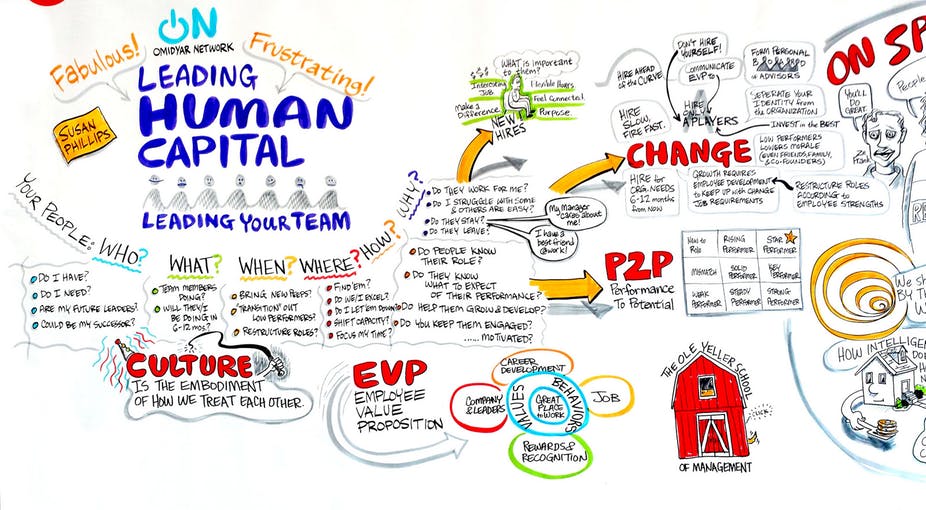 ON
OMIDYAR NETWORK
Fabulous!
Frustrating!
LEADING
HUMAN
CAPITAL
SUSAN
PHILLIPS
LEADING YOUR TEAM
YOUR PEOPLE:
WHO?
DO I HAVE?
DO I NEED?
ARE MY FUTURE LEADERS?
COULD BE MY SUCCESSOR?
WHAT?
TEAM MEMBERS
DOING?
WILL THEY/I
BE DOING IN
6-12 MOS?
WHEN?
BRING NEW PEEPS?
TRANSITION OUT
LOW PERFORMERS?
RESTRUCTURE ROLES?
WHERE?
FIND 'EM?
DO WE/I EXCEL?
DO I LET 'EM DOWN?
SHIFT CAPACITY?
FOCUS MY TIME?
HOW?
DO PEOPLE KNOW
THEIR ROLE?
DO THEY KNOW
WHAT TO EXPECT
OF THEIR PERFORMANCE?
DO HELP THEM GROW & DEVELOP?
DO YOU KEEP THEM ENGAGED?
..... MOTIVATED?
WHY?
DO THEY WORK FOR ME?
DO I STRUGGLE WITH SOME
& OTHERS ARE EASY?
DO THEY STAY?
DO THEY LEAVE?
My Manager
cares about
me!
I have a
best friend
@work!
WHAT is important
to them?
Interesting
JOB
Flexible Hours
Feel Connected.
Make a
Difference.
Purpose.
NEW
HIRES
CHANGE
HIRE AHEAD
OF THE CURVE.
DON'T HIRE
YOURSELF!
COMMUNICATE
EVP
FORM PERSONAL
BOARD
of ADVISORS
HIRE
SLOW,
FIRE FAST.
HIRE
ONLY
A PLAYERS
SEPERATE YOUR
IDENTITY from
the ORGANIZATION
INVEST in the BEST
LOW PERFORMERS
LOWERS MORALE
(EVEN FRIENDS, FAMILY,
& CO-FOUNDERS)
HIRE for
ORG. NEEDS
6-12 months
from NOW
GROWTH REQUIRES
EMPLOYEE DEVELOPMENT
to KEEP UP with CHANGE
JOB REQUIREMENTS
RESTRUCTURE ROLES
ACCORDING to
EMPLOYEE STRENGTHS
P2P
Performance
To Potential
New to
Role
RISING
PERFORMER
STAR
PERFORMER
MISMATCH
SOLID
PERFORMER
KEY
PERFORMER
WEAK
PERFORMER
STEADY
PERFORMER
STRONG
PERFORMER
CULTURE
IS THE EMBODIMENT
OF HOW WE TREAT EACH OTHER.
EVP
EMPLOYEE
VALUE
PROPOSITION
CAREER
DEVELOPMENT
COMPANY
& LEADERS
VALUES
BEHAVIORS
GREAT
PLACE
to WORK
JOB
REWARDS &
RECOGNITION
THE OLE YELLER SCHOOL
OF MANAGEMENT
ON SP
PEOPLE
YOU'LL
DO
GREAT
Frank
We sh
By T
W
HOW INTELLIGEN